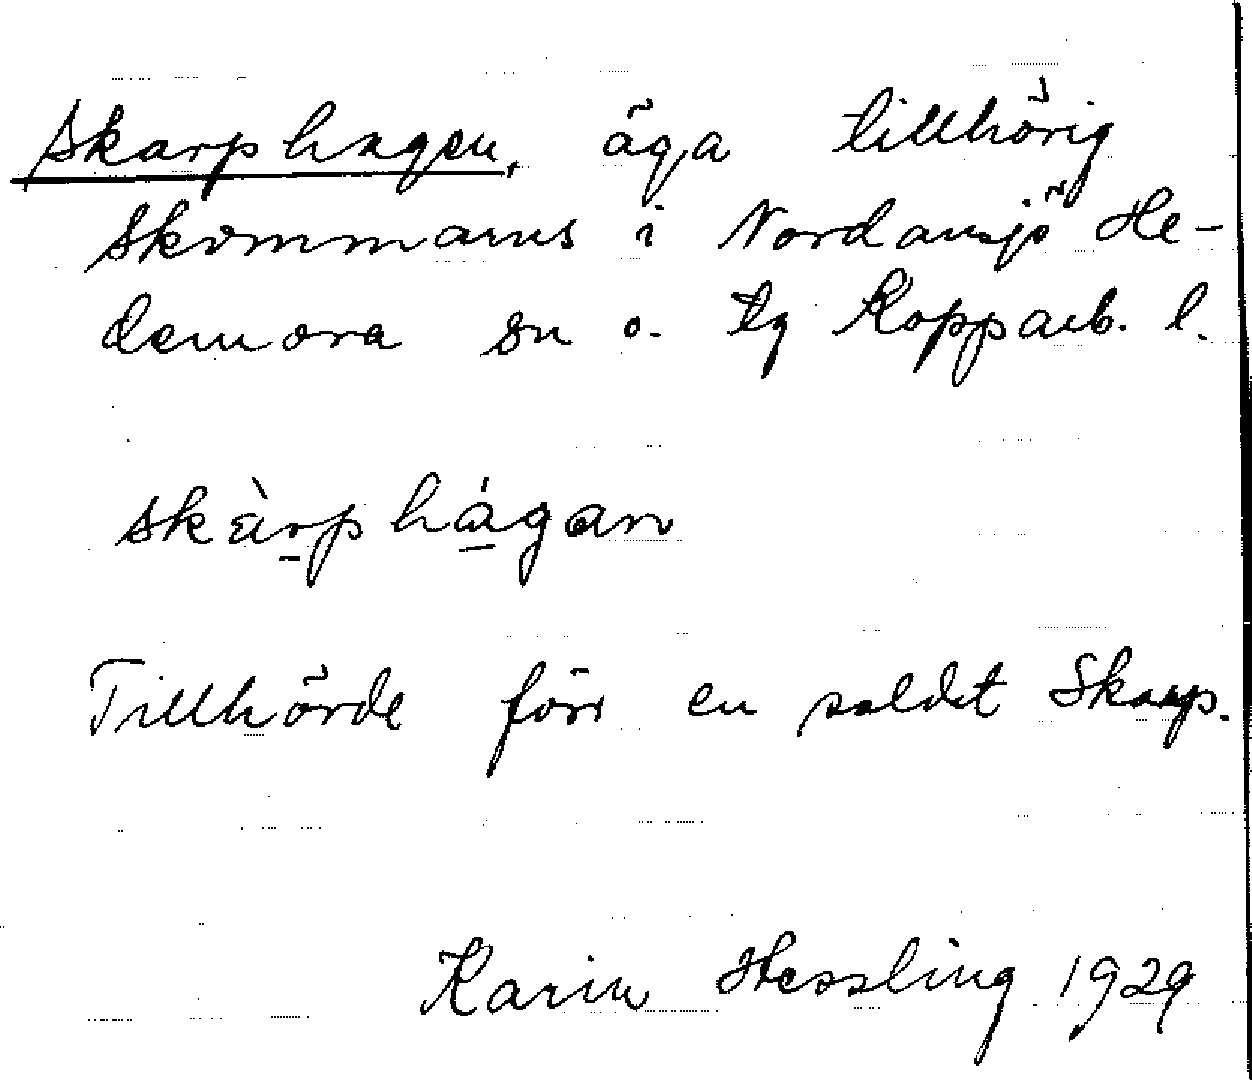 Skarphagen, äga tillhörig
Skommars i Nordansjö He-
demora sn o. tg Kopparb. l.
skàrphágan
Tillhörde förr en soldat Skarp.
Karin Hessling 1929